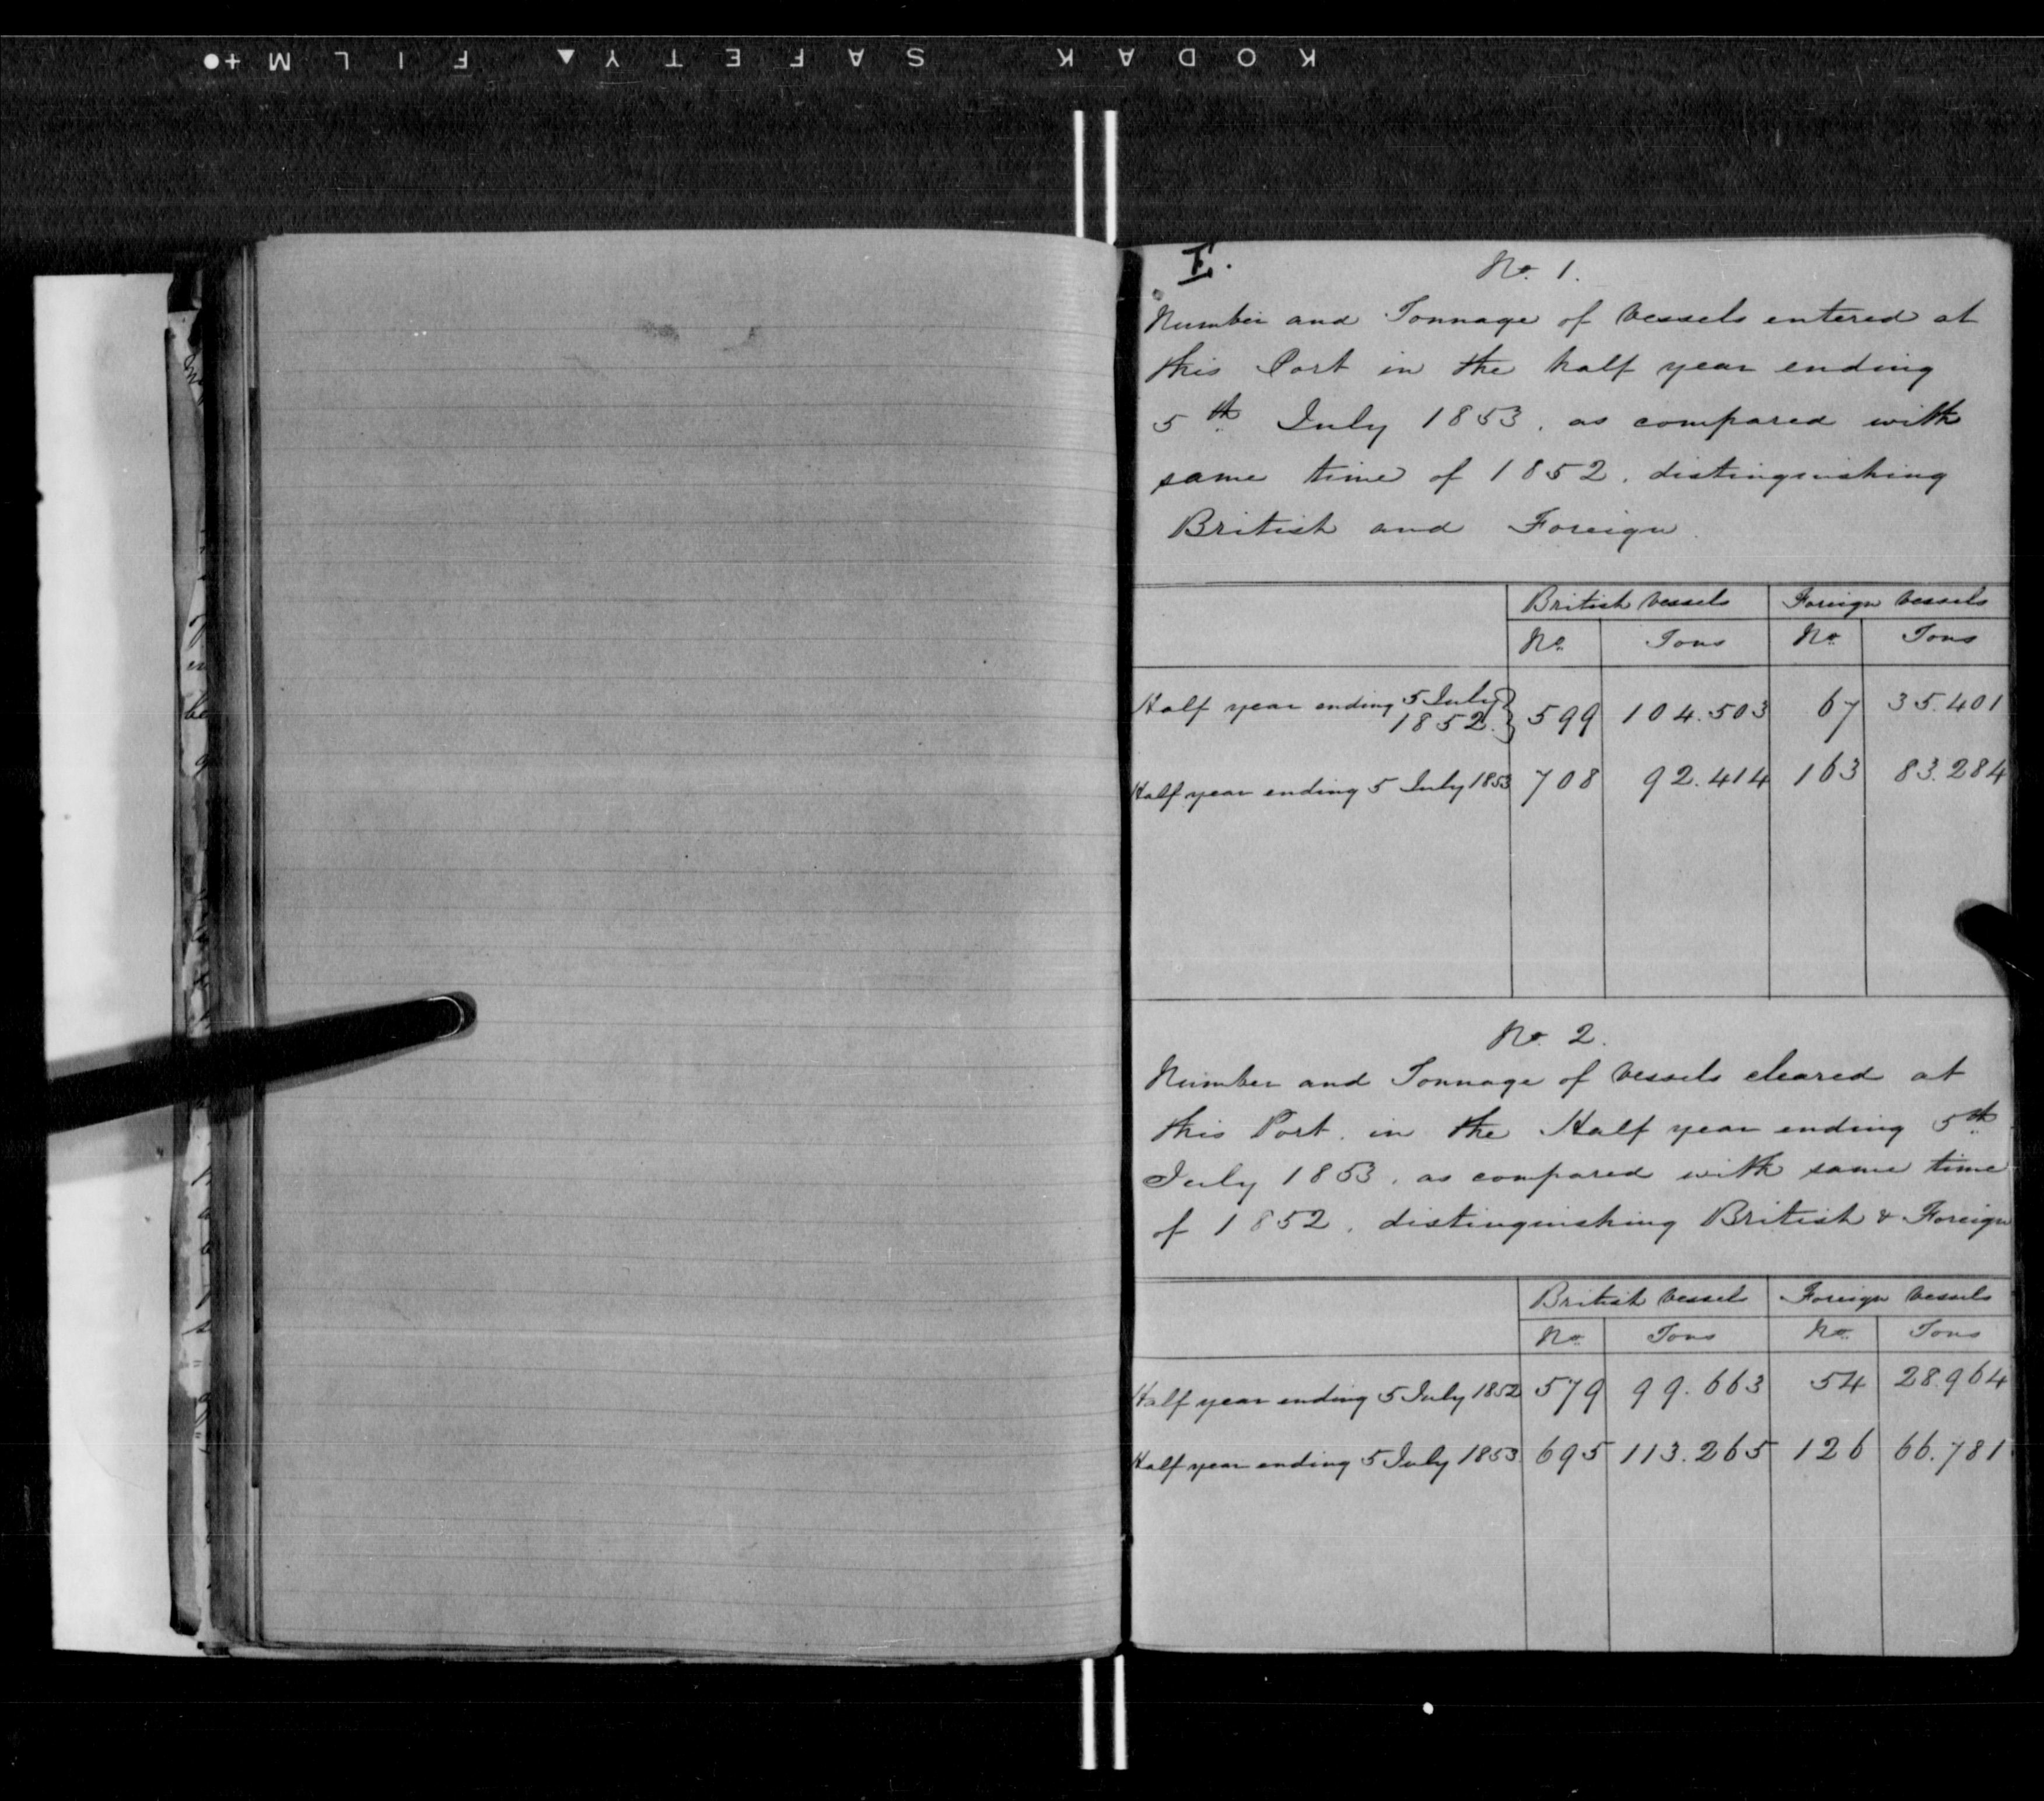 KODAK SAFETY FILM
E.
No. 1.
Number and Tonnage of Vessels entered at
this Port in the half year ending
5th July 1853, as compared with
same time of 1852, distinguishing
British and Foreign.
British Vessels Foreign Vessels
No. Tons No. Tons
Half year ending 5 July
1852. 599 104.503 67 35.401
Half year ending 5 July 1853 708 92.414 163 83.284
No. 2.
Number and Tonnage of Vessels cleared at
this Port, in the Half year ending 5th
July 1853, as compared with same time
of 1852, distinguishing British & Foreign
British Vessels Foreign Vessels
No. Tons No. Tons
Half year ending 5 July 1852 579 99.663 54 28.964
Half year ending 5 July 1853 695 113.265 126 66.781